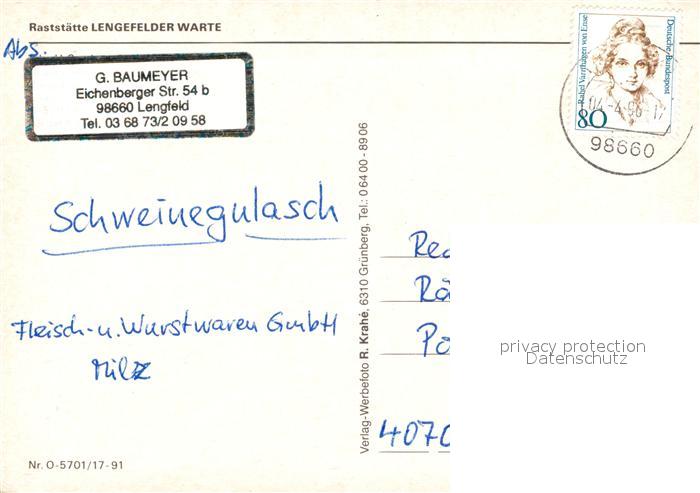 Raststätte LENGEFELDER WARTE
Abs.
G. BAUMEYER
Eichenberger Str. 54 b
98660 Lengfeld
Tel. 03 68 73/2 09 58
Schweinegulasch
Fleisch- u. Wurstwaren GmbH
Milz
Nr. O-5701/17-91
Verlag-Werbefoto R. Krahé, 6310 Grünberg, Tel.: 0 64 00 - 89 06
Rahel Varnhagen von Ense
Deutsche Bundespost
80
98660
Red
Rä
Po
4070
privacy protection
Datenschutz